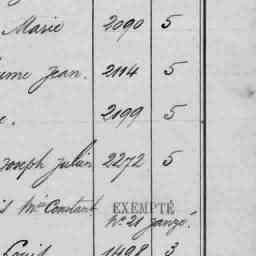 Marie 2090 5
ume Jean. 2104 5
e. 2199 5
Joseph Julien 2272 5
is Mie Constant EXEMPTÉ
No 21 Janzé.
Louis 1498 3